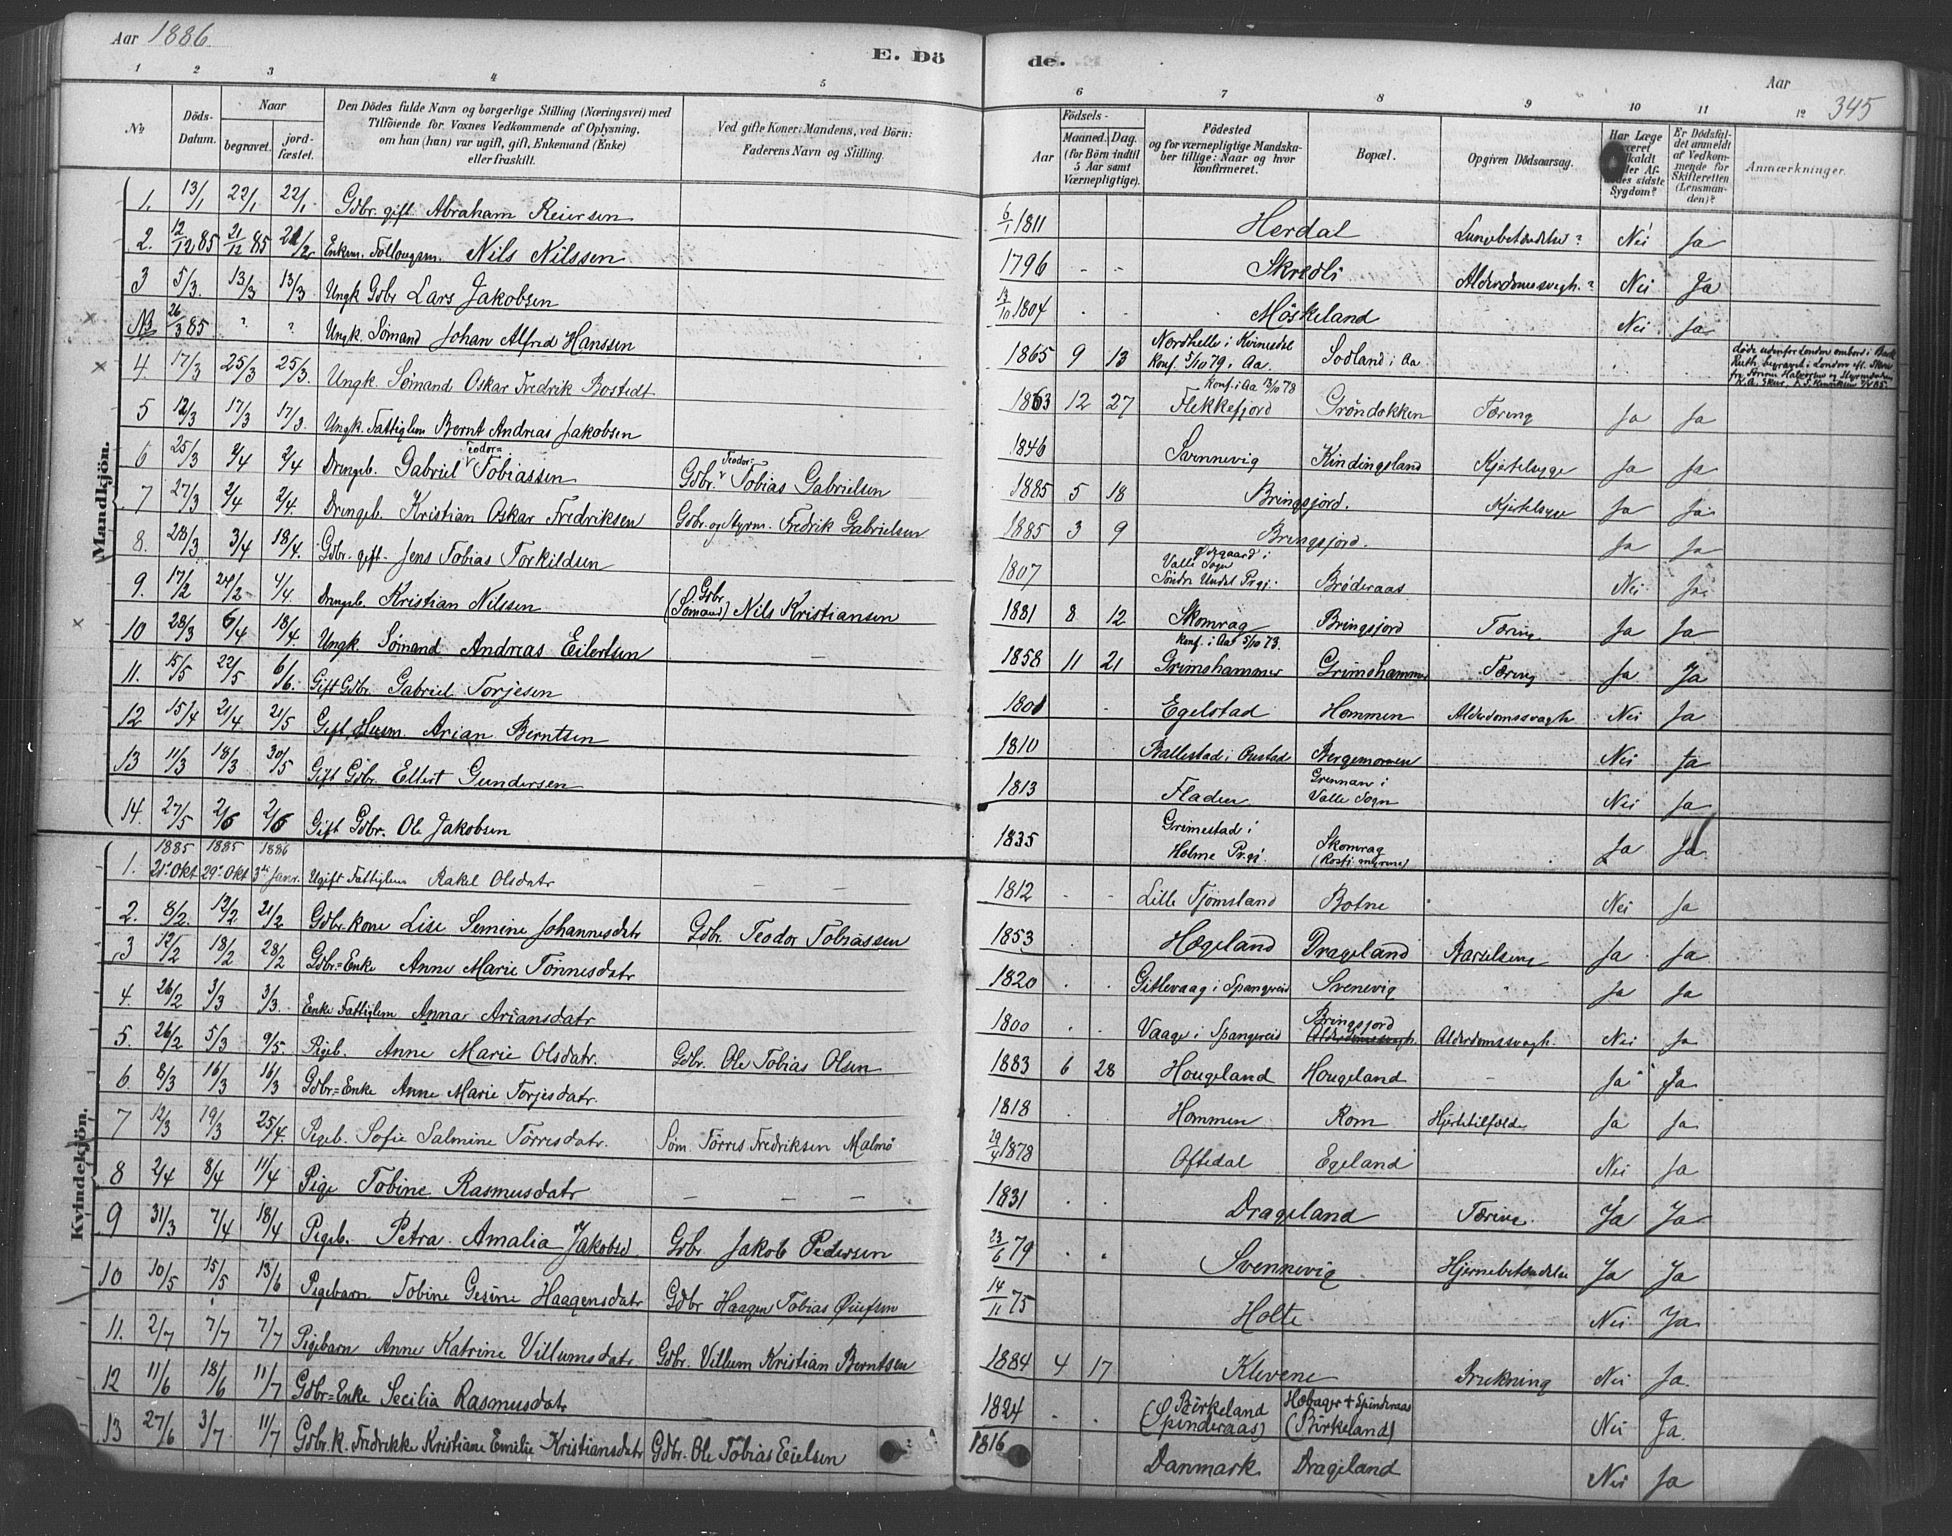 Aar 1886.
E. Dö de.
Aar
345
1 2 3 4 5 6 7 8 9 10 11 12
No
Döds-Datum.
Naar
begravet.
jord-fæstet.
Den Dödes fulde Navn og borgerlige Stilling (Næringsvei) med
Tilföiende for Voxnes Vedkommende af Oplysning,
om han (hun) var ugift, gift, Enkemand (Enke)
eller fraskilt.
Ved gifte Koner: Mandens, ved Börn:
Faderens Navn og Stilling.
Födsels-
Aar
Maaned. Dag.
(for Börn indtil
5 Aar samt
Værnepligtige).
Födested
og for værnepligtige Mandska-
ber tillige: Naar og hvor
konfirmeret.
Bopæl.
Opgiven Dödsaarsag.
Har Læge
været
Sygdom?
Er Dödsfal-
det anmeldt
af Vedkom-
mende for
Skifteretten
(Lensman-
den)?
Anmærkninger.
Mandkjön.
1. 13/1 22/1 22/1 Gdbr. gift Abraham Reiersen 6/1 1811 Herdal Lungebetændelse? Nei Ja
2. 12/12 85 21/12 85 21/2 Enkem. Nils Nilssen 1796 - - Skredli Alderdomssvagh.? Nei Ja
3 5/3. 13/3 13/3 Ungk Gdbr Lars Jakobsen 13/10 1804 . . Möskeland Nei Ja
26/3 85 ? ? Ungk. Sømand Johan Alfred Hanssen 1865 9 13 Nordhelle i Kvinesdal Konf. 5/10 79 i Aa. Sodland i Aa . . døde udenfor London ombord i Bark
4. 17/3 25/3 25/3. Ungk. Sømand Oskar Fredrik Bostedt 1863 12 27 Konf. i Aa 13/10 78 Flekkefjord Grøndokken Tæring Ja Ja
5 12/3 17/3 17/3. Ungk. Fattiglem Bernt Andreas Jakobsen 1846 Svennevig Kindingsland Kjertelsyge Ja Ja
6 25/3 2/4 2/4 Drengeb. Gabriel Teodor= Tobiassen Gdbr. Teodor Tobias Gabrielsen 1885 5 18 Bringsjord. Kjertelsyge Ja Ja
7 27/3 2/4 2/4. Drengeb. Kristian Oskar Fredriksen Gdbr. og Styrm. Fredrik Gabrielsen 1885 3 9 Bringsjord. Ja Ja
8. 28/3 3/4 18/4. Gdbr. gift. Jens Tobias Torkildsen 1807 Valle Sogn Søndre Undal Prgj. Brøderaas Nei Ja
9. 17/2 24/2 4/4. Drengeb. Kristian Nilssen Gdbr (Sømand) Nils Kristiansen 1881 8 12 Skomrag Bringsjord Tæring Ja Ja
10 28/3 6/4 18/4. Ungk. Sømand Andreas Eilertsen 1858 11 21 Konf. i Aa 5/10 73. Grimshammer Grimshammer Tæring Ja Ja
11. 15/5 22/5 6/6. Gift Gdbr. Gabriel Torjesen 1801 Egelstad Hommen Alderdomssvagh Nei Ja
12 15/4 21/4 21/5 Gift Husm. Arian Berntsen 1810 Ballestad i Bergemoreen Nei Ja
13 11/3 18/3 30/5 Gift Gdbr. Ellert Gundersen 1813 Fladen Grennan i Valle Sogn Nei Ja
14. 27/5 2/6 2/6 Gift Gdbr. Ole Jakobsen 1835 Grimestad i Holme Prgj. Skomrag Ja Ja
Kvindekjön.
1. 1885 21de Okt 1885 29de Okt 1886 3die Janr. Ugift Fattiglem Rakel Olsdatr — — 1812 . . Lille Tjømsland Botne Nei Ja
2. 8/2. 12/2 21/2 Gdbr. kone Lise Semine Johannesdatr Gdbr. Teodor Tobiassen 1853 Hægeland Drageland Barselseng Ja Ja
3 12/2 18/2 28/2 Gdbr=Enke Anne Marie Tønnesdatr 1820 . . Gitlevaag i Spangereid Svenevig Ja Ja
4. 26/2 3/3 3/3. Enke Fattiglem Anna Ariansdatr 1800 . . Vaage i Spangereid Bringsjord Alderdomssvagh. Alderdomssvagh. Nei Ja
5. 26/2 5/3 9/5. Pigeb. Anne Marie Olsdatr. Gdbr. Ole Tobias Olsen 1883 6 28 Hougeland Hougeland - Ja Ja
6 8/3 16/3 16/3 Gdbr=Enke Anne Marie Torjesdatr. 1818 Hommen Rom Hjertetilfælde Ja Ja
7 12/3 19/3 25/4. Pigeb. Sofie Salmine Torresdatr. Søm. Torres Fredriksen Malmö 29/4 1878 Oftedal Egeland Nei Ja
8 2/4 8/4 11/4 Pige Tobine Rasmusdatr — — — 1831 . . Drageland Tæring Ja Ja
9 31/3 7/4 18/4 Pigeb. Petra Amalia Jakobsd Gdbr. Jakob Pedersen 23/6 79 . . Svennevig Hjernebetændelse Ja Ja
10 10/5 15/5 13/6 Pigebarn Tobine Gesine Haagensdatr Gdbr Haagen Tobias 14/11 75 Holte Nei Ja
11. 2/7 7/7 7/7 Pigebarn Anne Katrine Villumsdatr Gdbr. Villum Kristian Berntsen 1884 4 17 Klevene Nei Ja
12 11/6 18/6 11/7 Gdbr=Enke Secilia Rasmusdatr 1824 . . Birkeland (Spinderaas) Spinderaas (Birkeland) Nei Ja
13 27/6 3/7 11/7 Gdbr. k. Fredrikke Kristiane Emilie Kristiansdatr Gdbr. Ole Tobias Eielsen 1816 Danmark Drageland Nei Ja